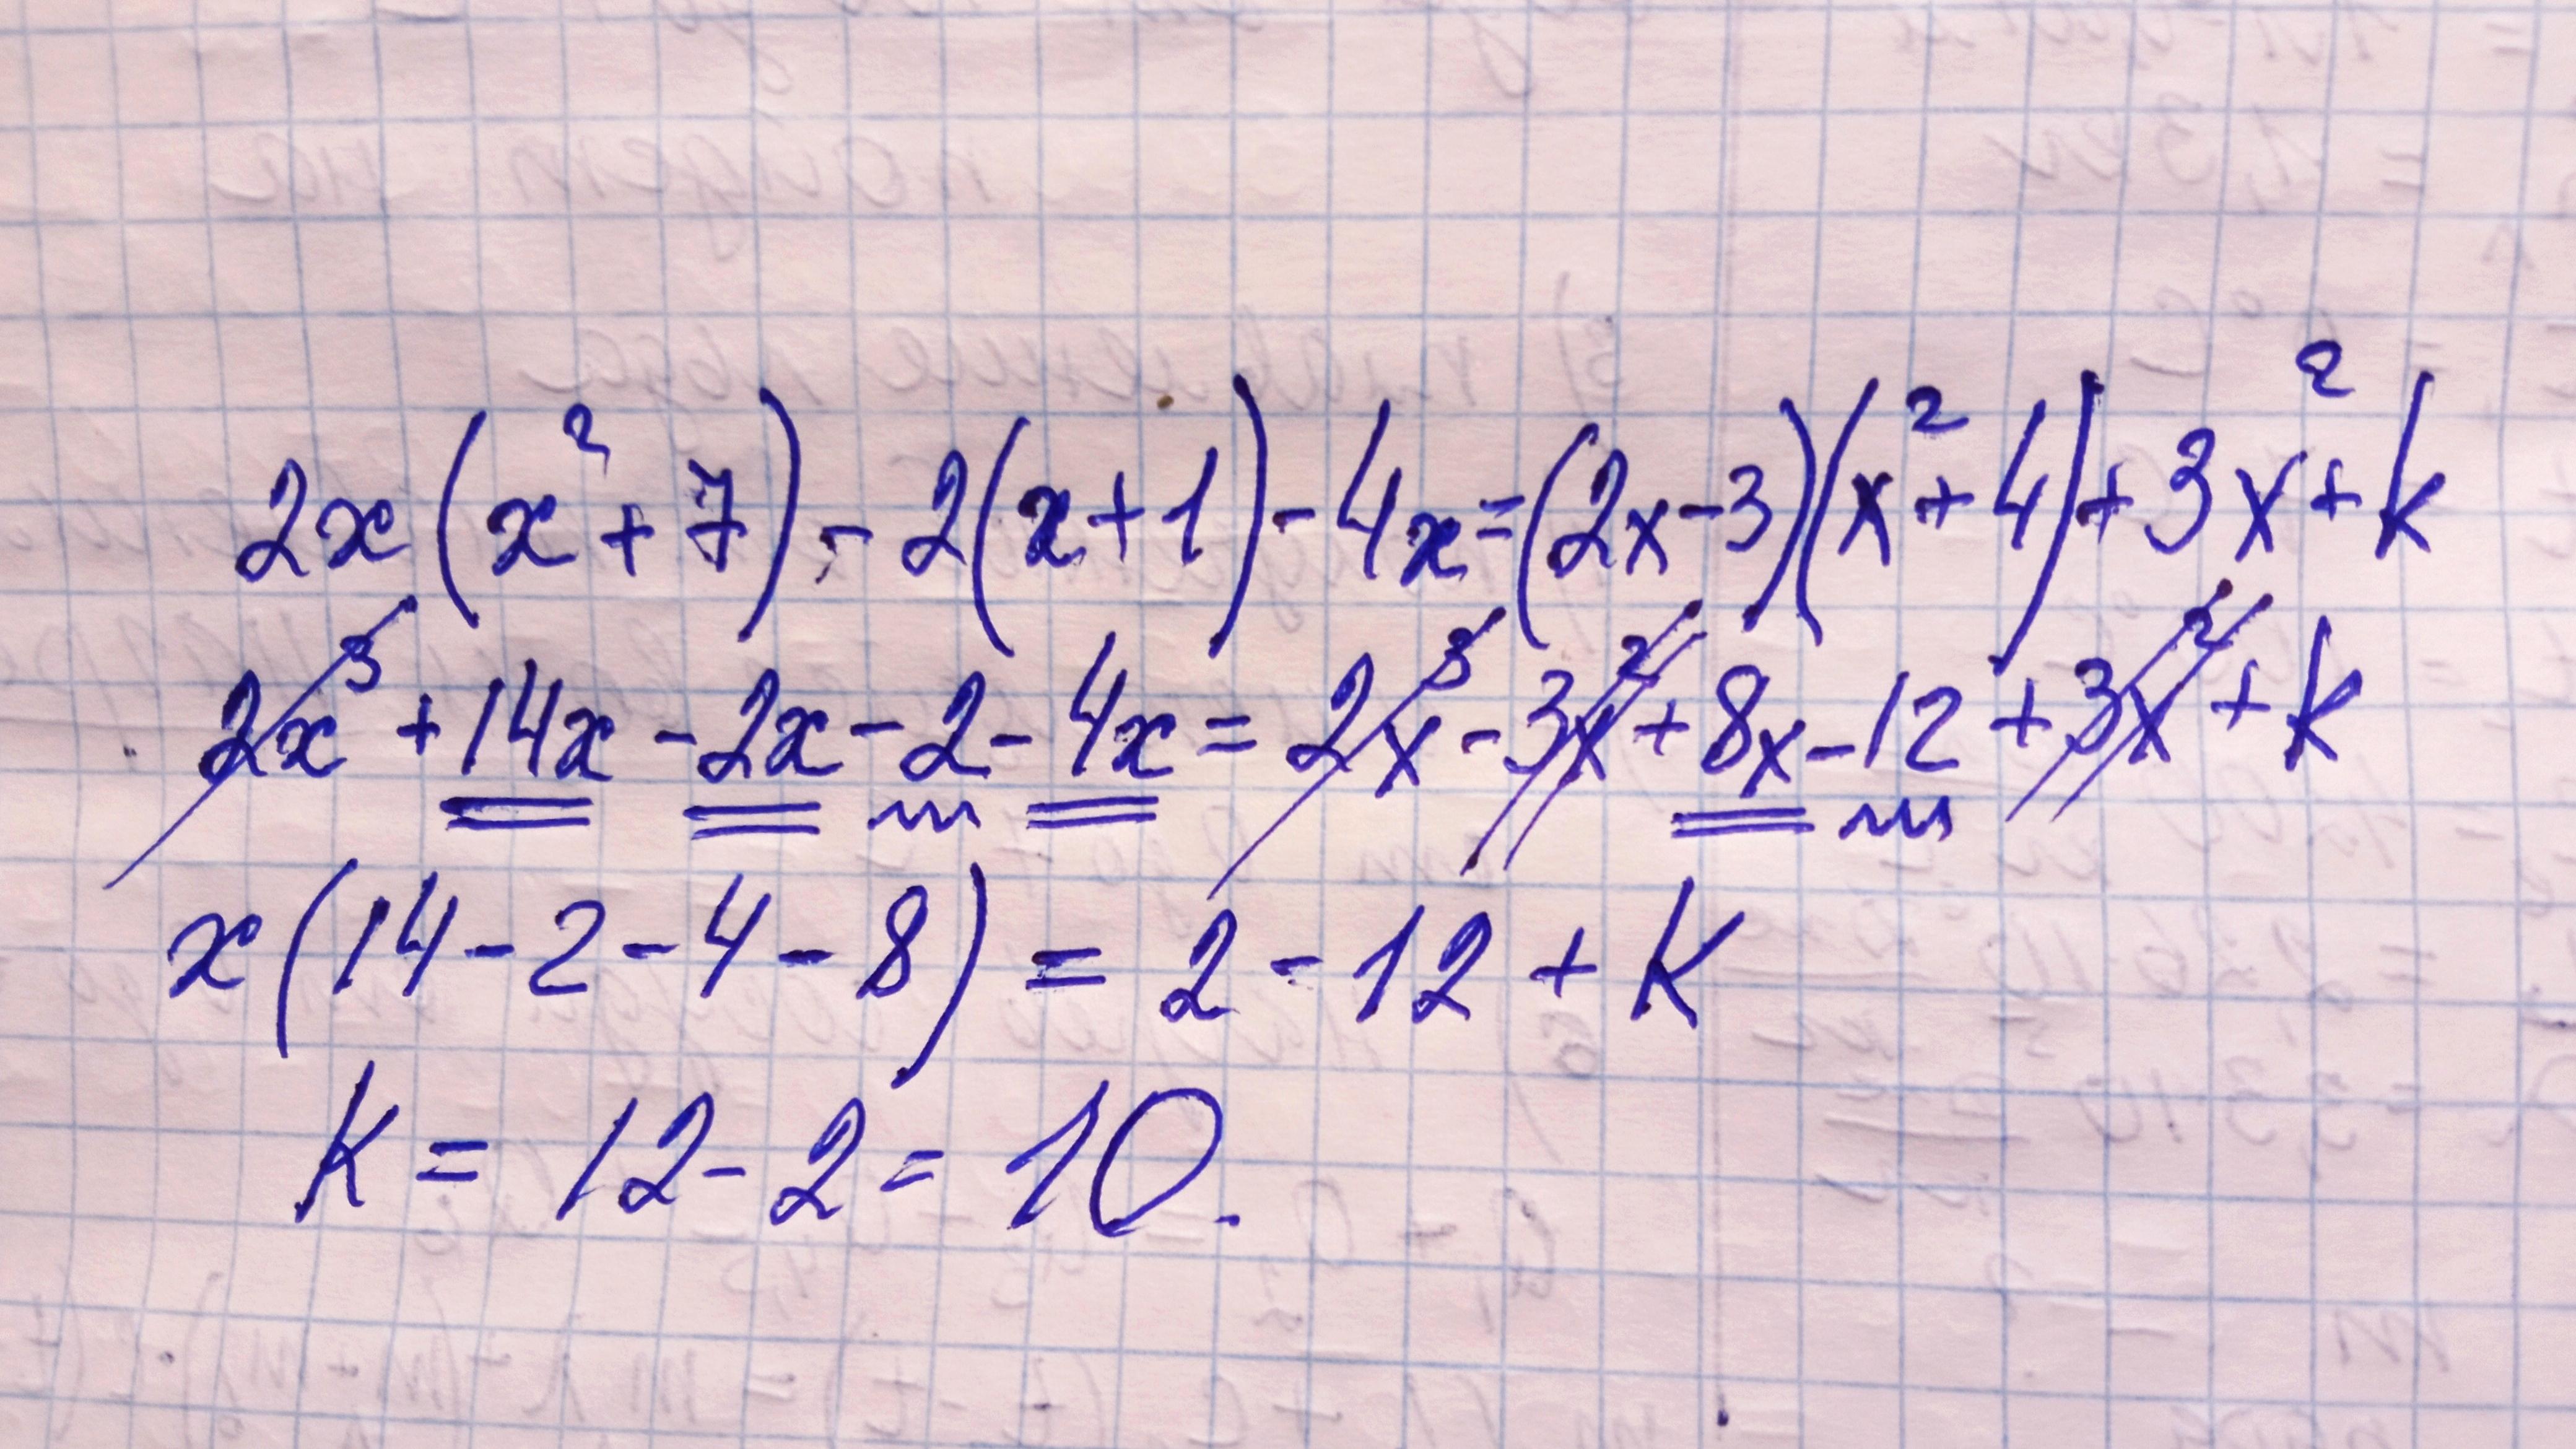 2x(x²+7)-2(x+1)-4x=(2x-3)(x²+4)+3x²+k
2x³+14x-2x-2-4x=2x³-3x²+8x-12+3x²+k
x(14-2-4-8)=2-12+k
k=12-2=10.